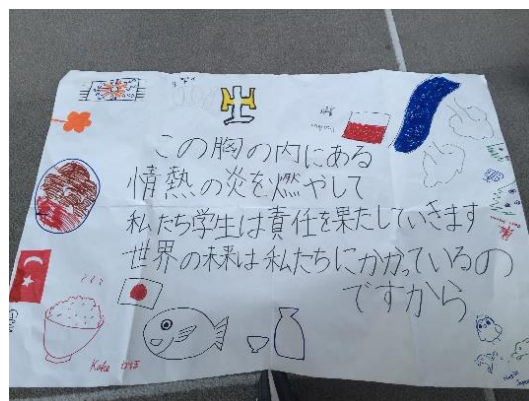 この胸の内にある
情熱の炎を燃やして
私たち学生は責任を果たしていきます
世界の未来は私たちにかかっているの
ですから